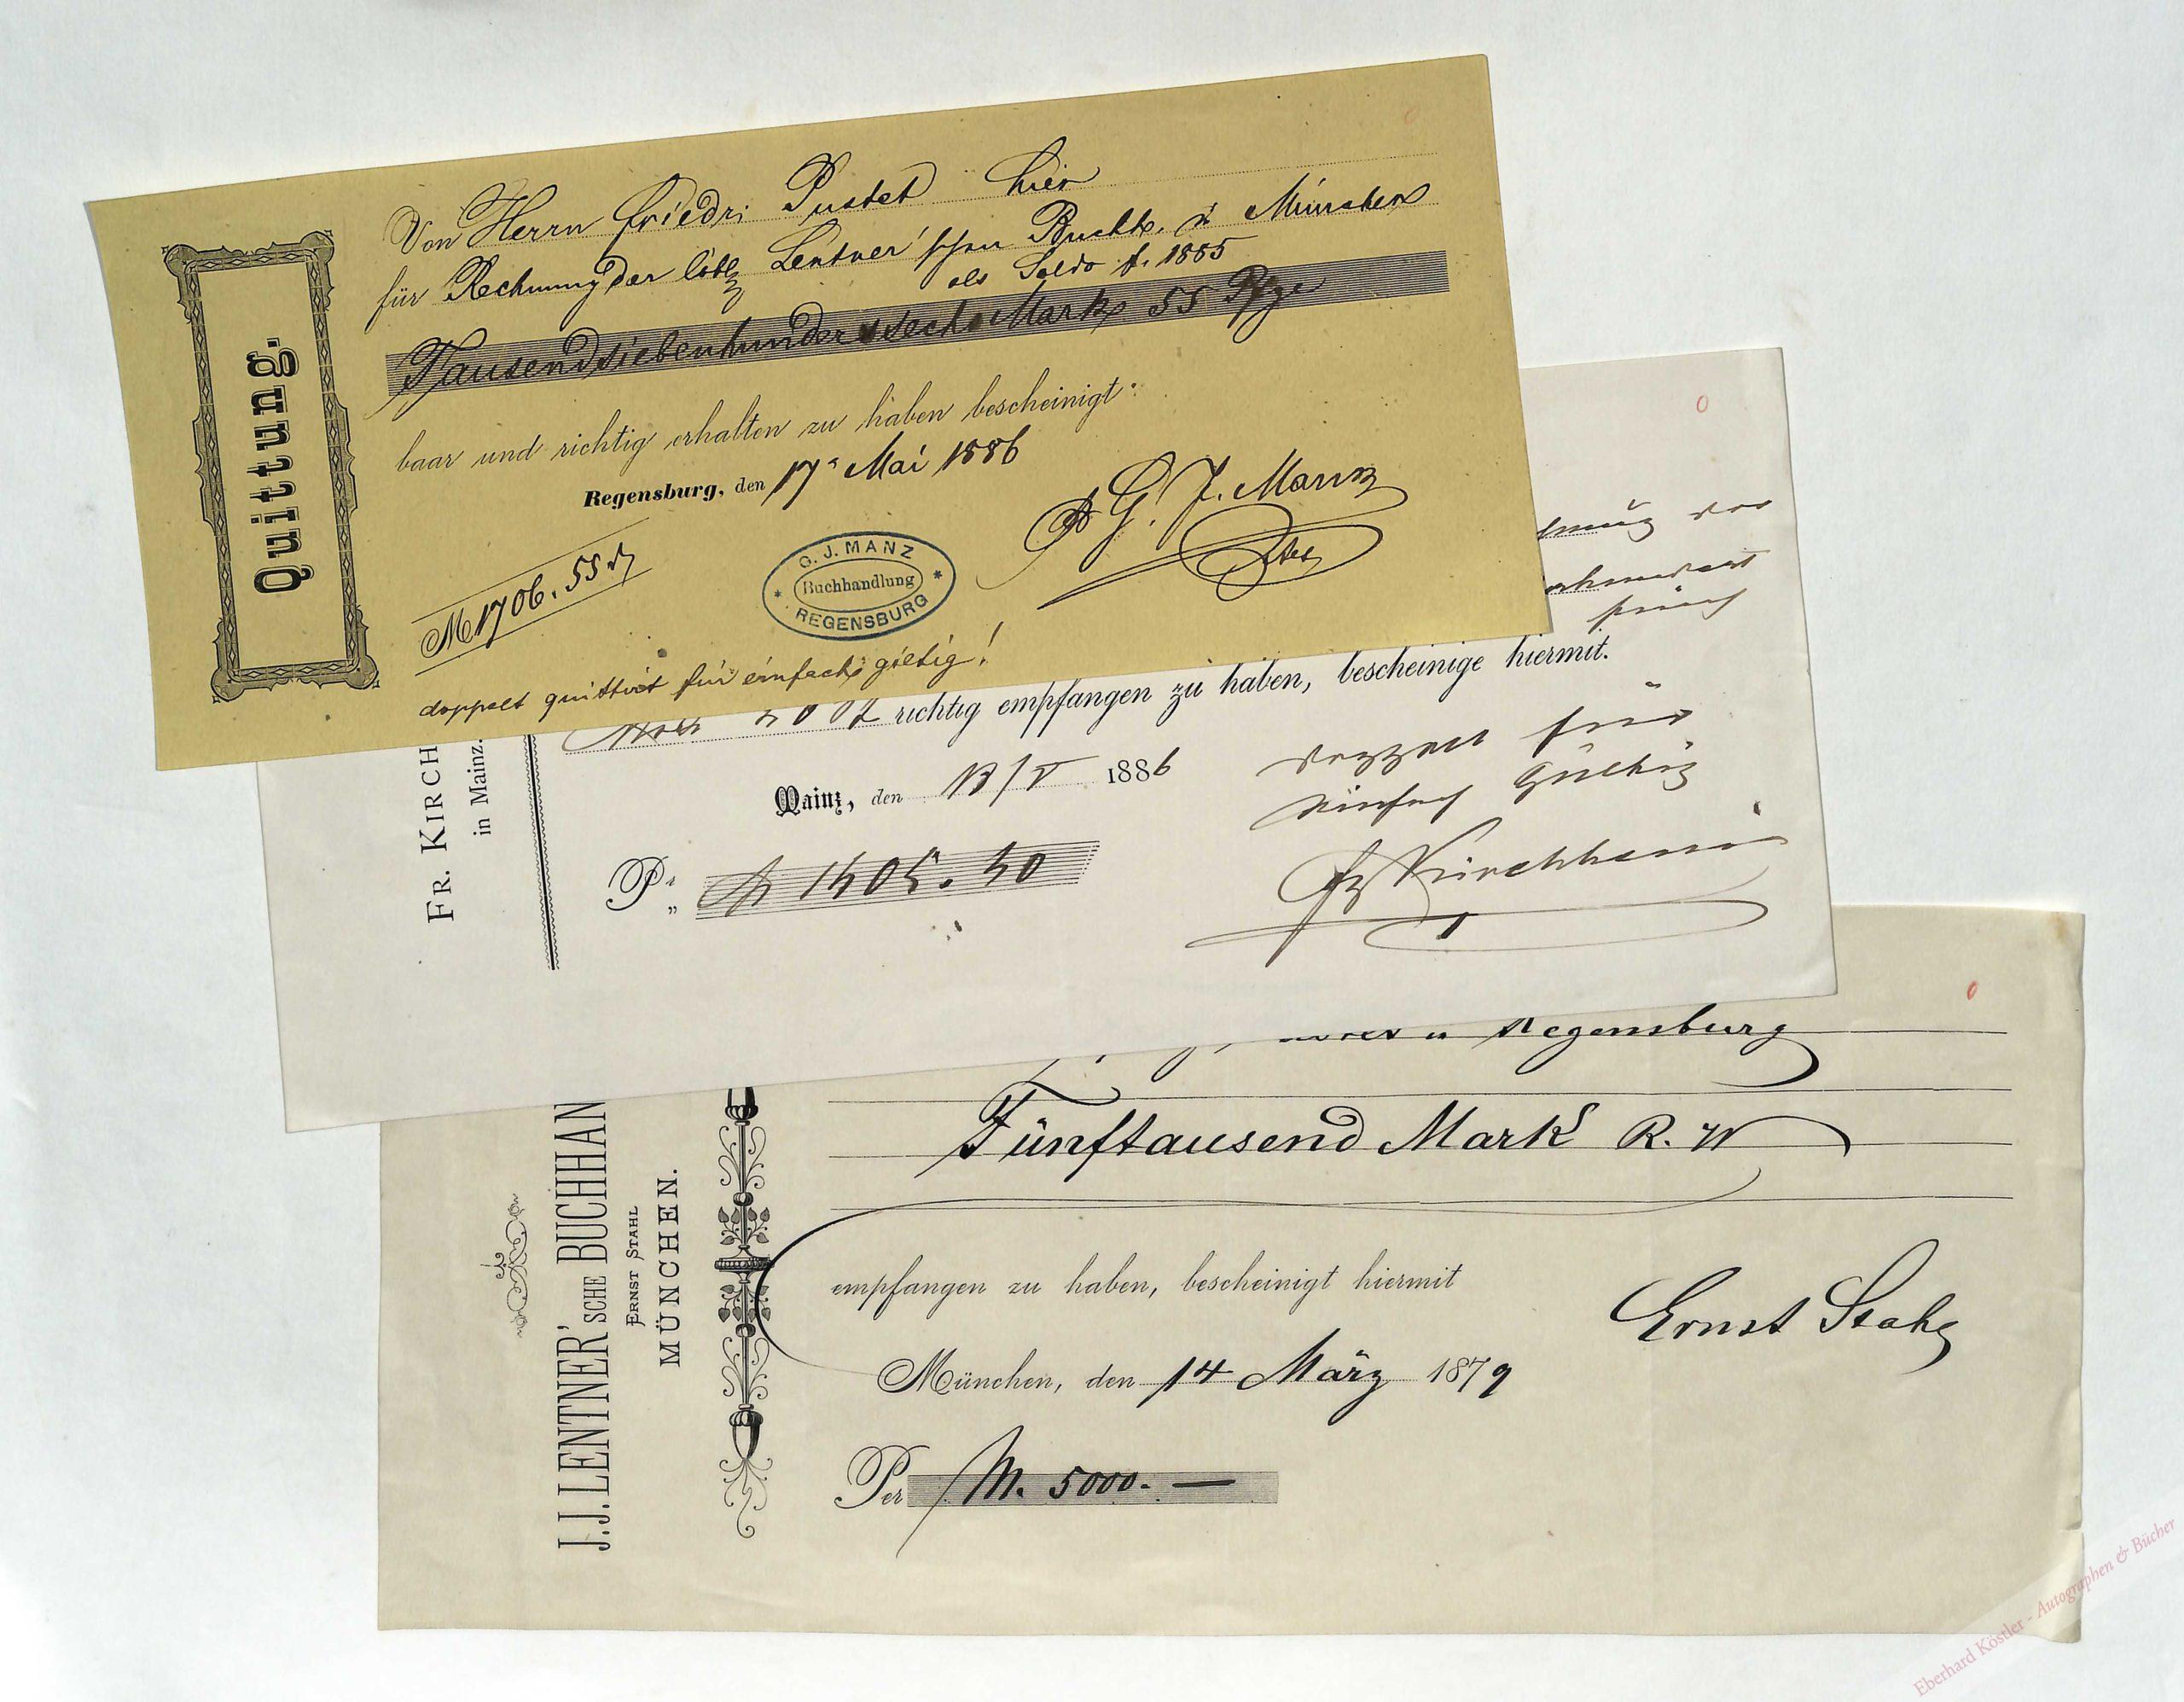 Quittung.
Von Herrn Friedr: Pustet hier
für Rechnung der löbl Lentner'schen Buchh. in München
als Saldo f. 1885
Tausendsiebenhundert sechs Mark 55 Pfge
baar und richtig erhalten zu haben bescheinigt:
Regensburg, den 17. Mai 1886
G. J. Manz
M 1706. 55
G. J. MANZ
Buchhandlung
REGENSBURG
doppelt quittirt für einfach giltig!
FR. KIRCH
in Mainz.
richtig empfangen zu haben, bescheinige hiermit.
Mainz, den 1886
doppelt für
einfach gültig
Fr Kirchheim
Pr.
Regensburg
J. J. LENTNER'SCHE BUCHHAN
ERNST STAHL
MÜNCHEN.
Fünftausend Mark R. W
empfangen zu haben, bescheinigt hiermit
Ernst Stahl
München, den 14 März 1879
Per M. 5000.—
Eberhard Köstler - Autographen & Bücher